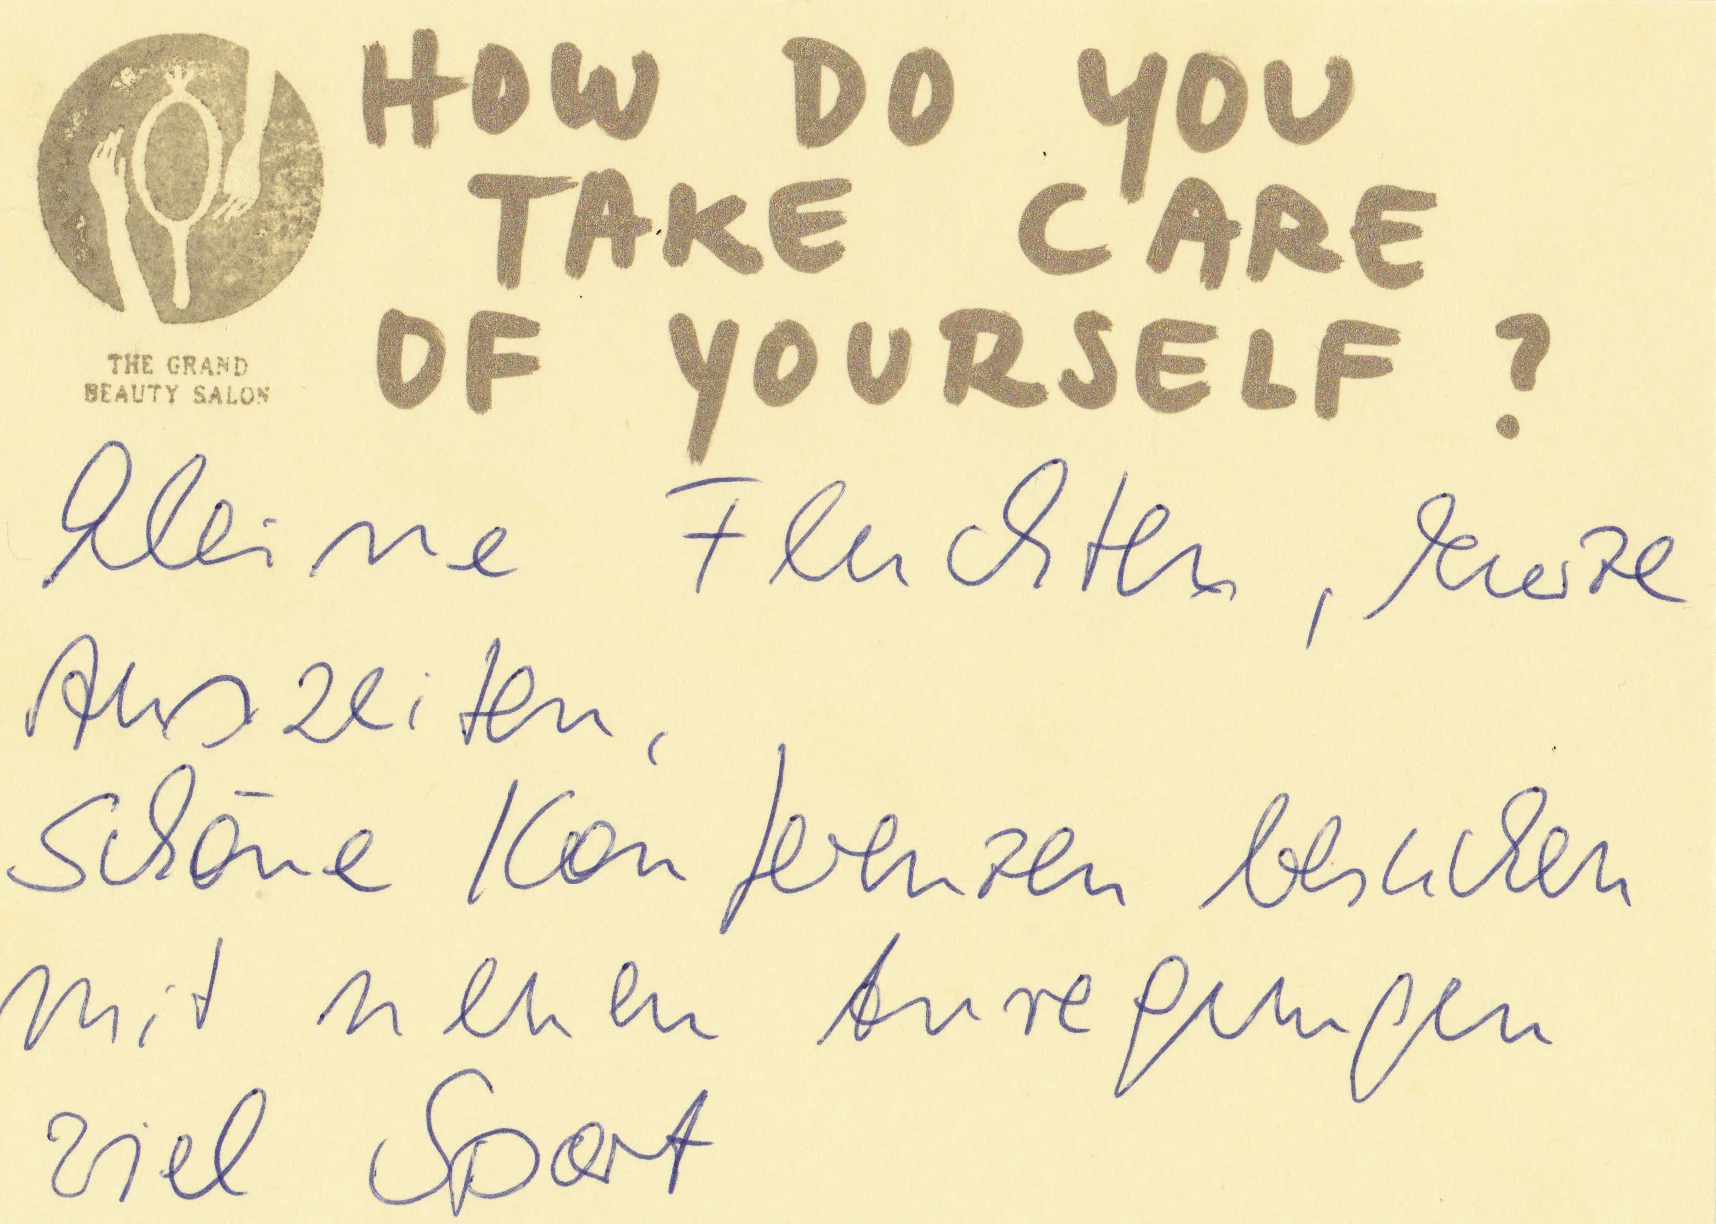 HOW DO YOU
TAKE CARE
OF YOURSELF ?
THE GRAND
BEAUTY SALON
kleine Fluchten, kurze
Auszeiten,
schöne Konferenzen besuchen
mit neuen Anregungen
viel Sport